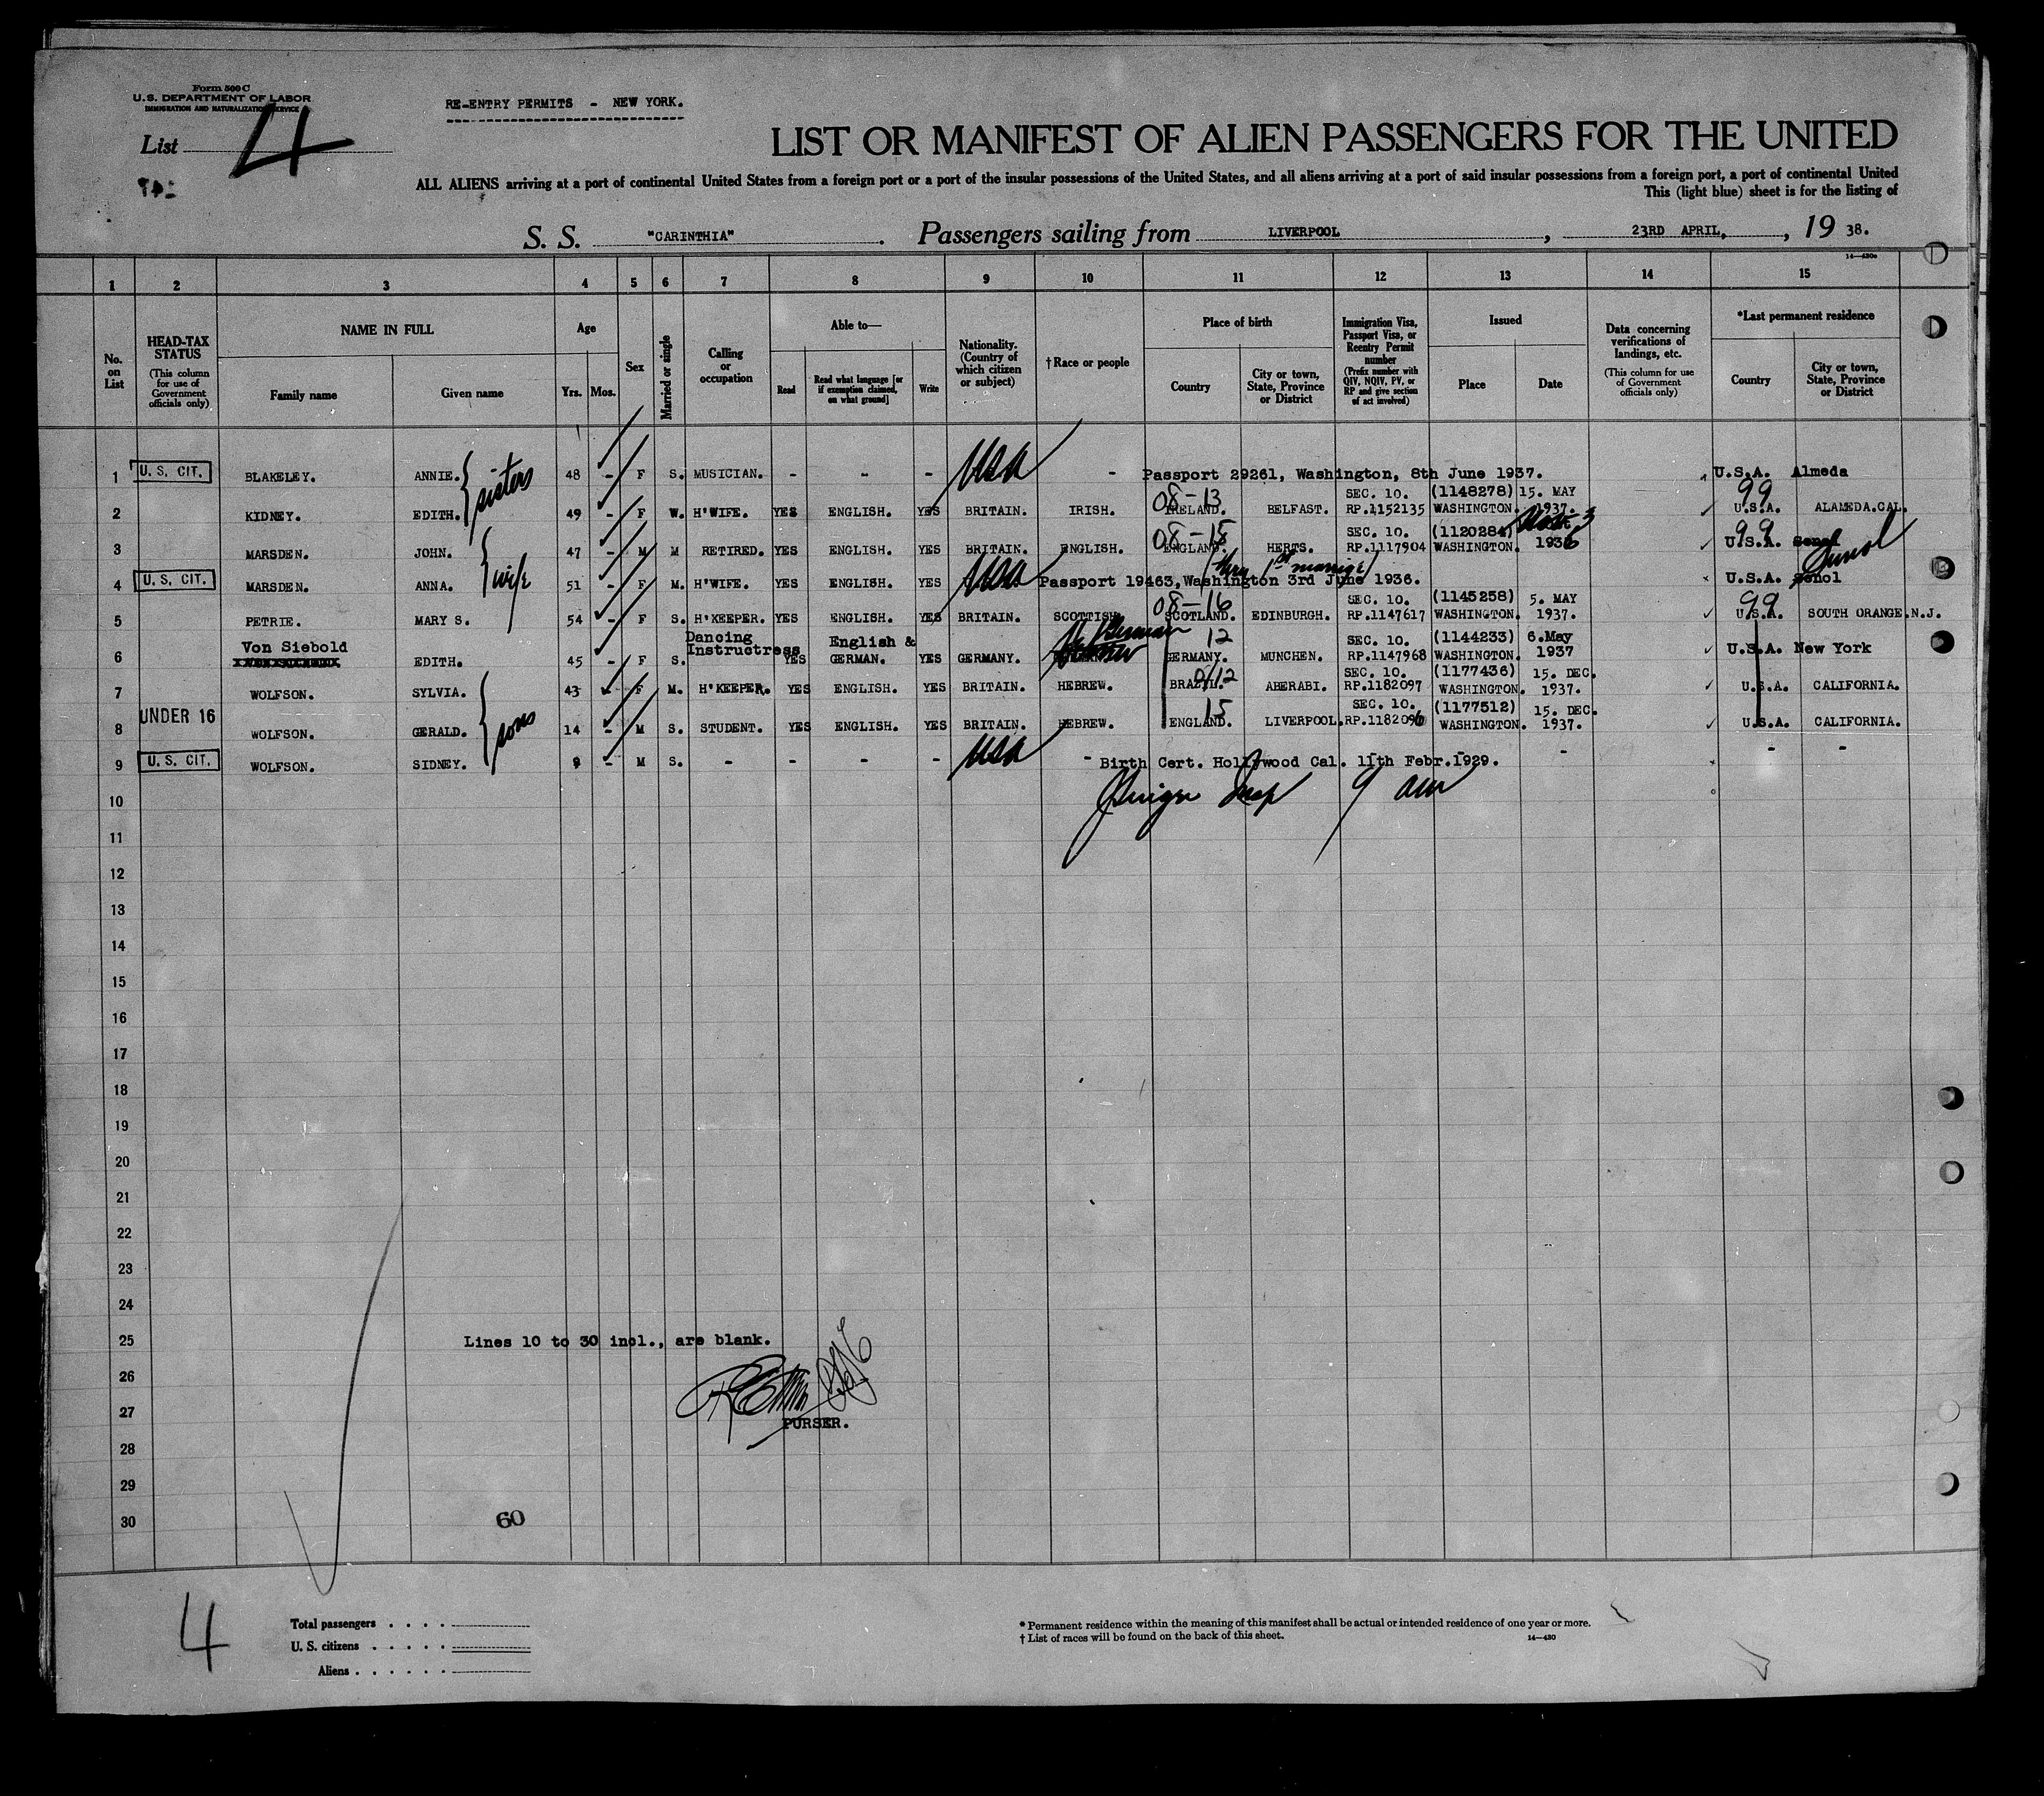 Form 500 C
U. S. DEPARTMENT OF LABOR
IMMIGRATION AND NATURALIZATION SERVICE
RE-ENTRY PERMITS - NEW YORK.
List 4
LIST OR MANIFEST OF ALIEN PASSENGERS FOR THE UNITED
ALL ALIENS arriving at a port of continental United States from a foreign port or a port of the insular possessions of the United States, and all aliens arriving at a port of said insular possessions from a foreign port, a port of continental United
This (light blue) sheet is for the listing of
S. S. "CARINTHIA" . Passengers sailing from LIVERPOOL , 23RD APRIL, , 19 38.
14—430c
1 2 3 4 5 6 7 8 9 10 11 12 13 14 15
No. on List
HEAD-TAX STATUS
(This column for use of Government officials only)
NAME IN FULL
Family name
Given name
Age
Yrs. Mos.
Sex
Married or single
Calling or occupation
Able to—
Read
Read what language [or if exemption claimed, on what ground]
Write
Nationality. (Country of which citizen or subject)
† Race or people
Place of birth
Country
City or town, State, Province or District
Immigration Visa, Passport Visa, or Reentry Permit number
(Prefix number with QIV, NQIV, PV, or RP and give section of act involved)
Issued
Place
Date
Data concerning verifications of landings, etc.
(This column for use of Government officials only)
*Last permanent residence
Country
City or town, State, Province or District
1 U. S. CIT. BLAKELEY. ANNIE. sisters 48 - F S. MUSICIAN. - - - USA - Passport 29261, Washington, 8th June 1937. U.S.A. Almeda
08-13 SEC. 10. (1148278) 15. MAY 99
2 KIDNEY. EDITH. 49 - F W. H'WIFE. YES ENGLISH. YES BRITAIN. IRISH. IRELAND. BELFAST. RP.1152135 WASHINGTON. 1937. U.S.A. ALAMEDA.CAL.
08-15 SEC. 10. (1120284) Nov. 3 99
3 MARSDEN. JOHN. 47 - M M RETIRED. YES ENGLISH. YES BRITAIN. ENGLISH. ENGLAND. HERTS. RP.1117904 WASHINGTON. 1936 U.S.A.
4 U. S. CIT. MARSDEN. ANNA. wife 51 - F M. H'WIFE. YES ENGLISH. YES USA Passport 19463, Washington 3rd June 1936. U.S.A. Senol
08-16 SEC. 10. (1145258) 5. MAY 99
5 PETRIE. MARY S. 54 - F S. H'KEEPER. YES ENGLISH. YES BRITAIN. SCOTTISH. SCOTLAND. EDINBURGH. RP.1147617 WASHINGTON. 1937. U.S.A. SOUTH ORANGE.N.J.
Von Siebold Dancing Instructress English & German 12 SEC. 10. (1144233) 6.May
6 EDITH. 45 - F S. YES GERMAN. YES GERMANY. GERMANY. MUNCHEN. RP.1147968 WASHINGTON. 1937 U.S.A. New York
0/12 SEC. 10. (1177436) 15. DEC.
7 WOLFSON. SYLVIA. 43 - F M. H'KEEPER. YES ENGLISH. YES BRITAIN. HEBREW. BRAZIL. ABERABI. RP.1182097 WASHINGTON. 1937. U.S.A. CALIFORNIA.
15 SEC. 10. (1177512) 15. DEC.
8 UNDER 16 WOLFSON. GERALD. sons 14 - M S. STUDENT. YES ENGLISH. YES BRITAIN. HEBREW. ENGLAND. LIVERPOOL. RP.1182096 WASHINGTON. 1937. U.S.A. CALIFORNIA.
9 U. S. CIT. WOLFSON. SIDNEY. 9 - M S. - - - - USA - Birth Cert. Hollywood Cal. 11th Febr.1929. - - -
10
11
12
13
14
15
16
17
18
19
20
21
22
23
24
25 Lines 10 to 30 incl., are blank.
26
27 PURSER.
28
29
30 60
4
Total passengers
U. S. citizens
Aliens
* Permanent residence within the meaning of this manifest shall be actual or intended residence of one year or more.
† List of races will be found on the back of this sheet.
14—430